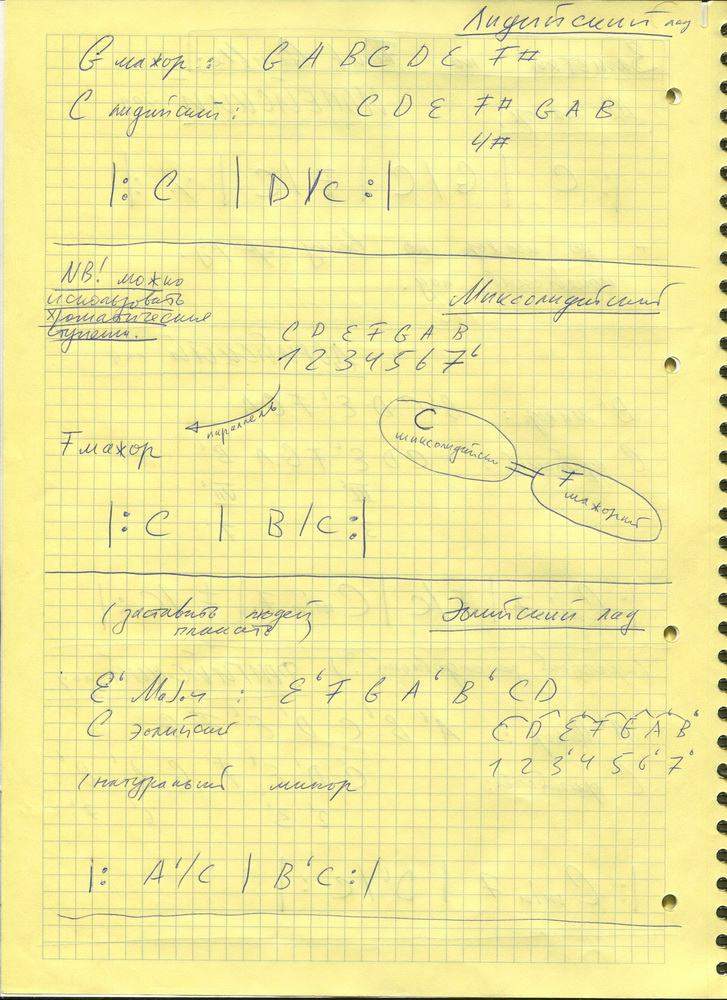 Лидийский лад
G мажор: G A B C D E F#
C лидийский: C D E F# G A B
4#
|: C | D/C :|
NB! можно
использовать
хроматические
ступени.
Миксолидийский
C D E F G A B
1 2 3 4 5 6 7♭
параллель
F мажор
C
миксолидийский
=
F
мажорный
|: C | B/C :|
(заставить людей
плакать)
Эолийский лад
E♭ Мажор: E♭ F G A♭ B♭ C D
C эолийский
C D E♭ F G A♭ B♭
1 2 3♭ 4 5 6♭ 7♭
(натуральный минор
|: A♭/C | B♭C :|